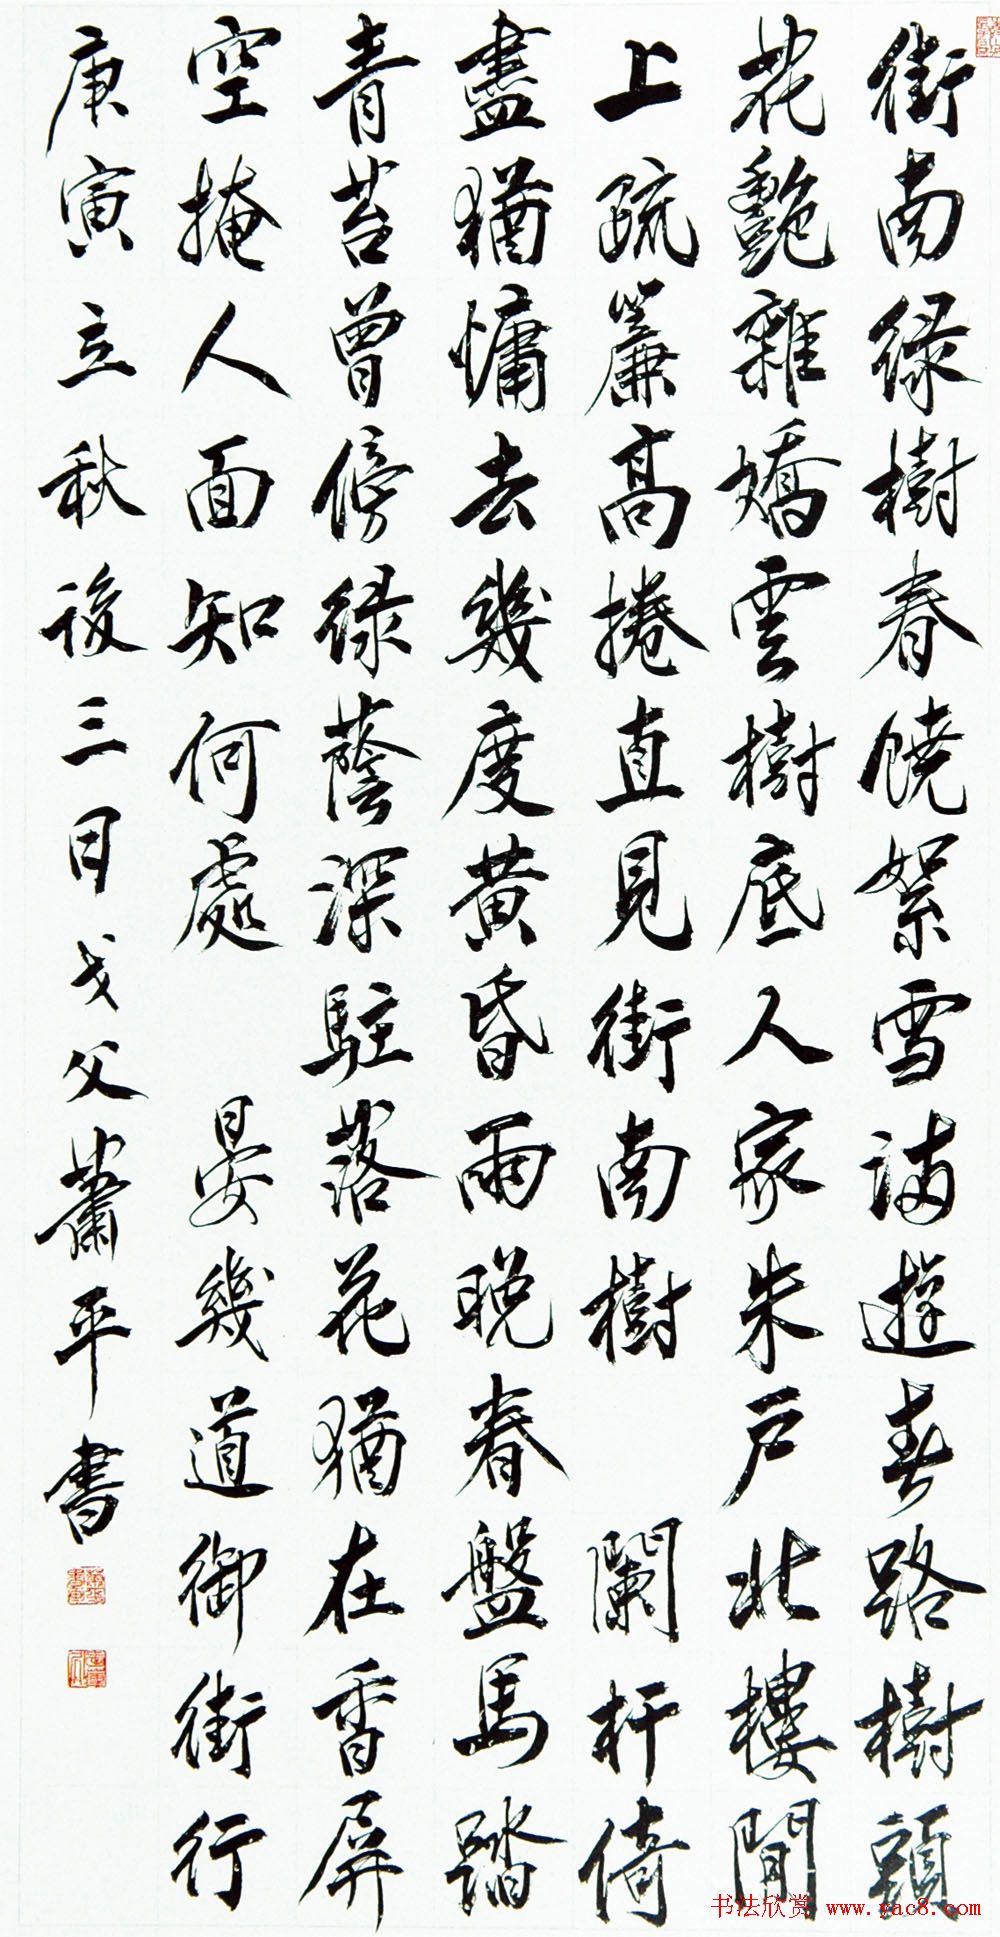 街南緑樹春饒絮雪满遊春路樹頭
花艷雜嬌雲樹底人家朱戶北樓閒
上疏簾高捲直見街南樹 闌杆倚
盡猶慵去幾度黄昏雨晚春盤馬踏
青苔曾傍緑蔭深駐落花猶在香屏
空掩人面知何處 晏幾道御街行
庚寅立秋後三日戈父蕭平書
书法欣赏 www.yac8.com